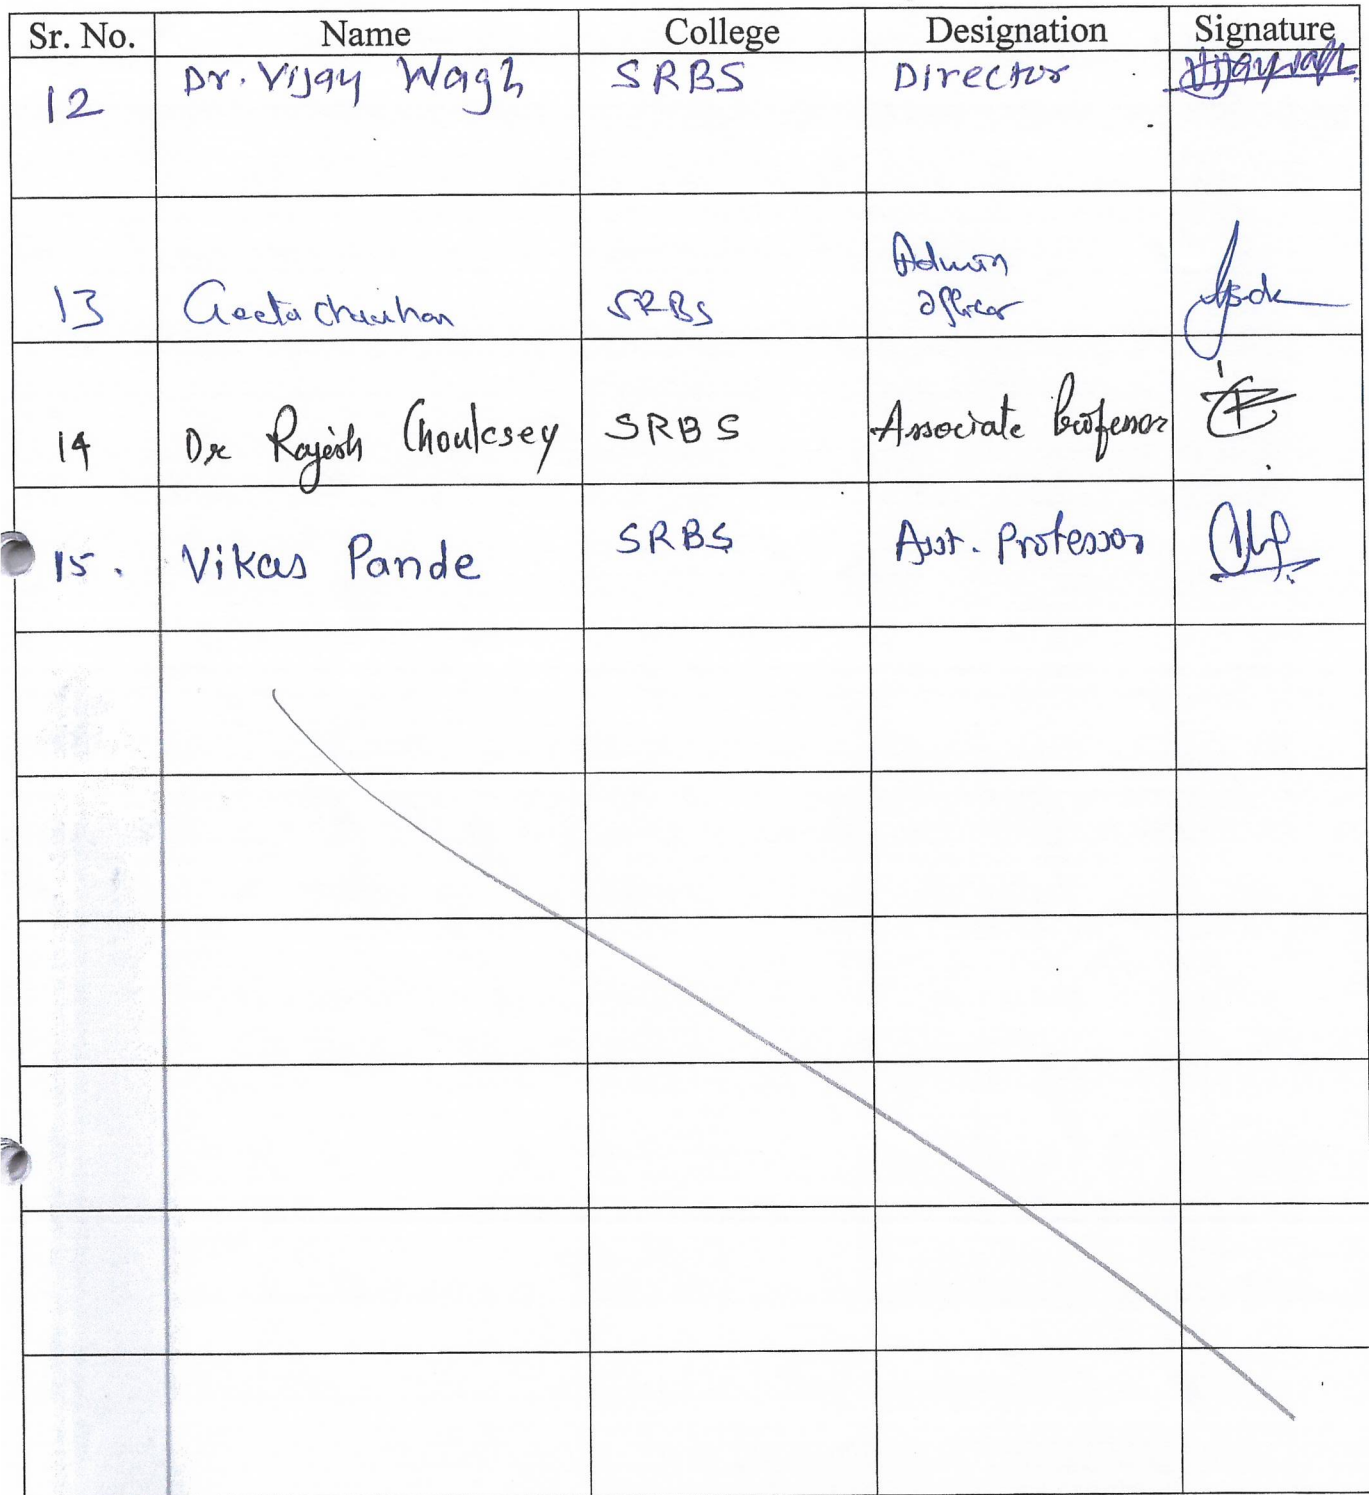 Sr. No. Name College Designation Signature
12 Dr. Vijay Wagh SRBS Director
13 Geeta Chauhan SRBS Admin
officer
14 Dr Rajesh Chouksey SRBS Associate Professor
15. Vikas Pande SRBS Asst. Professor